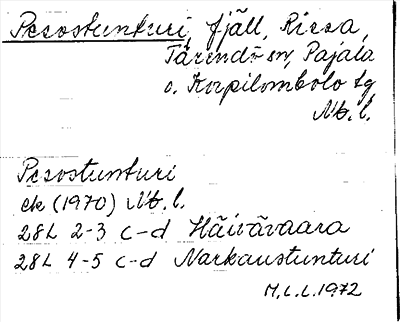 Pesostunturi, fjäll, Rissa,
Tärendö sn, Pajala
o. Korpilombolo tg
Nb. l.
Pesostunturi
ek (1970) Nb. l.
28L 2-3 c-d Häivävaara
28L 4-5 c-d Narkaustunturi
M.L.L. 1972